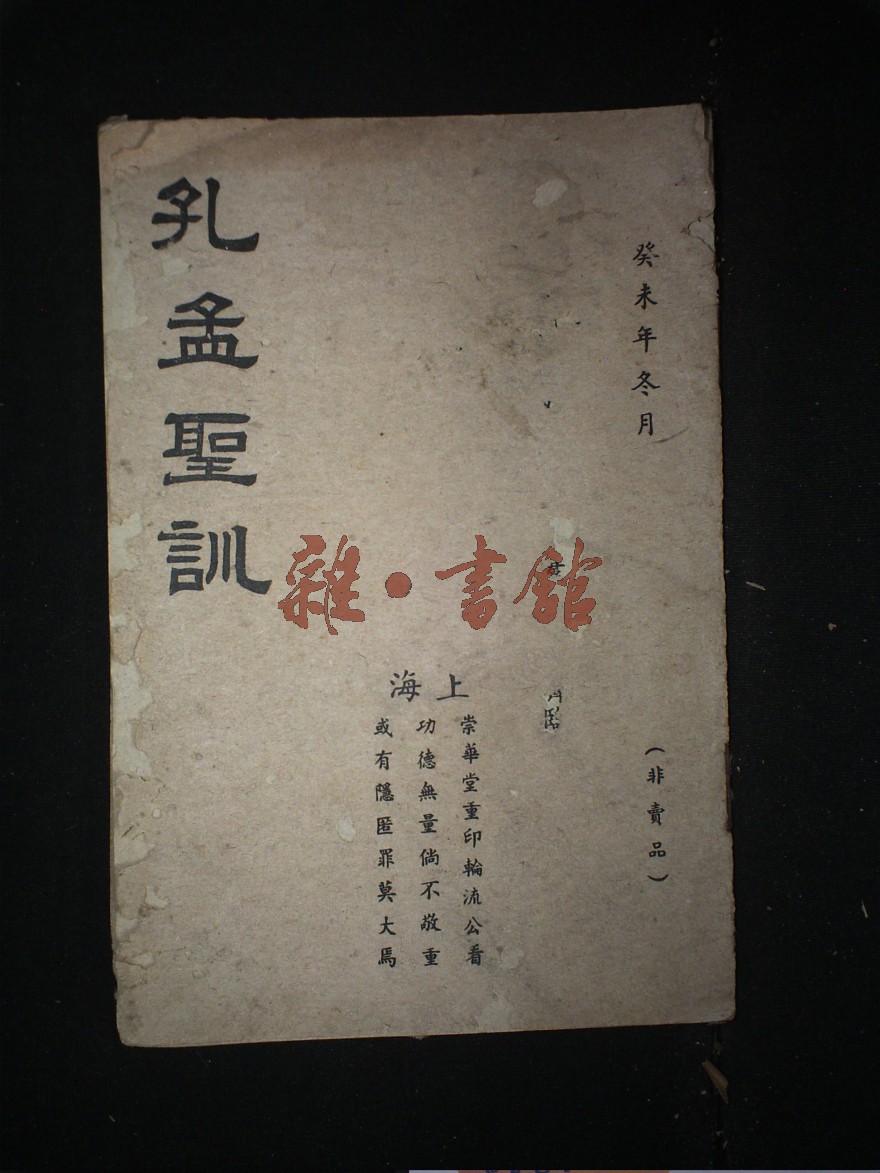 癸未年冬月
(非賣品)
上海
崇華堂重印輪流公看
功德無量倘不敬重
或有隱匿罪莫大焉
孔孟聖訓
雜·書館